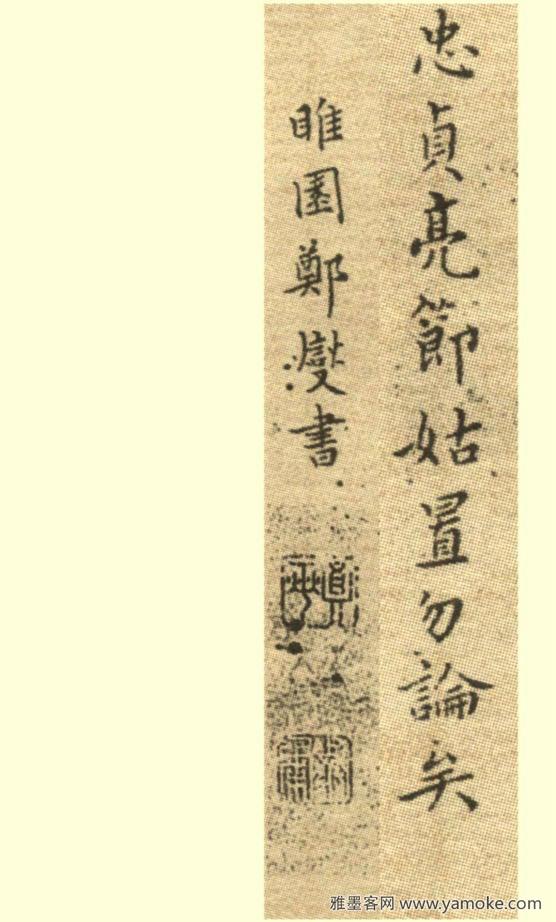 忠貞亮節姑置勿論矣
睢園鄭燮書
雅墨客网 www.yamoke.com